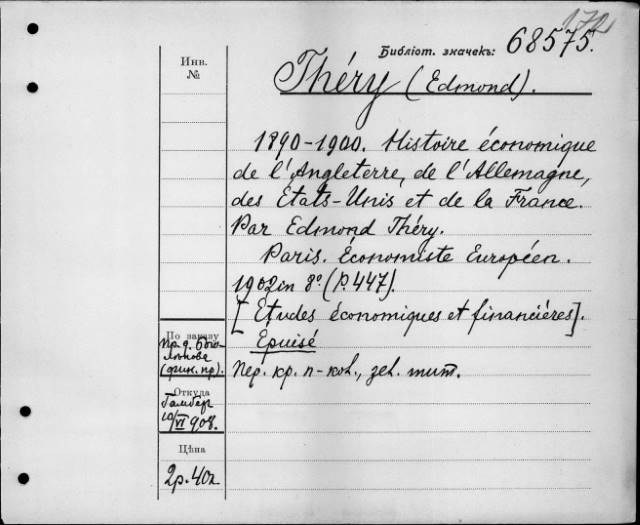 172
Библіот. значекъ: 68575.
Инв.
№
Théry (Edmond).
1890-1900. Histoire économique
de l'Angleterre, de l'Allemagne,
des Etats-Unis et de la France.
Par Edmond Théry.
Paris. Économiste Européen.
1902 in 8º (P. 447).
[Etudes économiques et financières].
Epuisé
Пер. кр. п-кож., зел. тит.
По заказу
Пр. д.
(фин. пр).
Откуда
10/VI 908.
Цѣна
2р. 40к